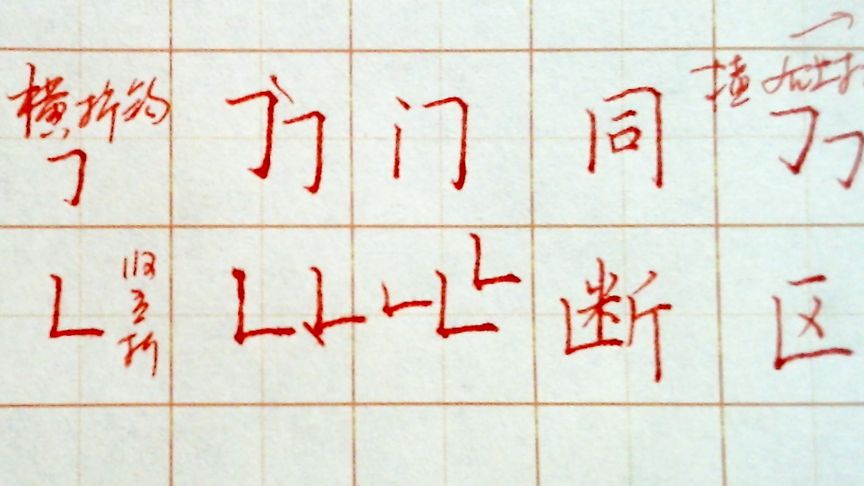 横折钩
𠃌 𠃌𠃌 门 同 𠃌𠃌
𠃊 竖折 𠃊𠃊𠃊𠃊𠃊 断 区